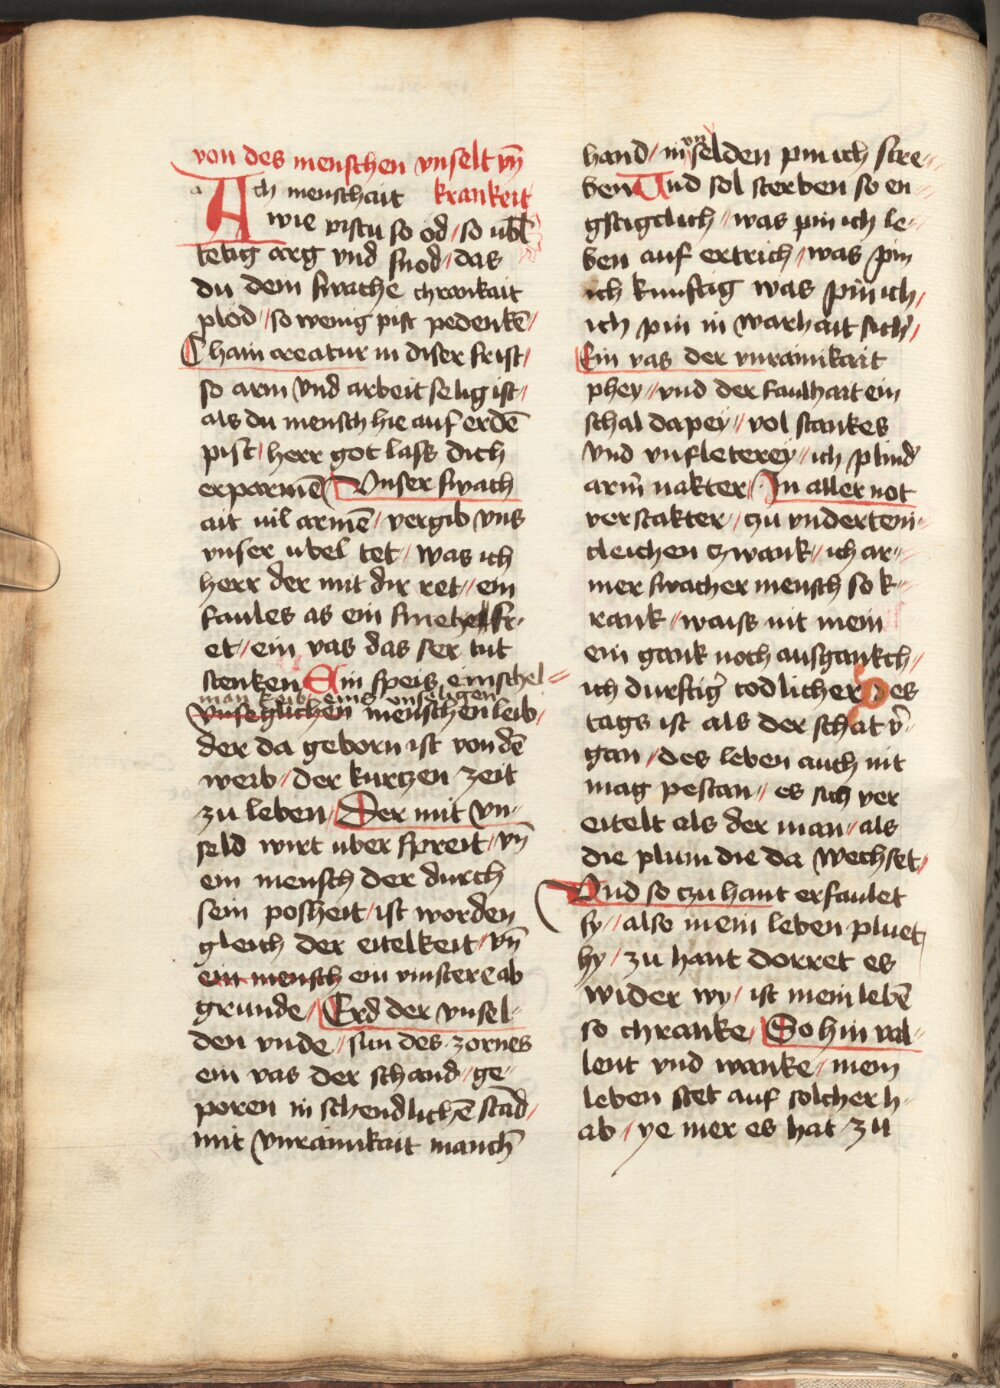 von des menschen vnselt vn̄
Ach menschait krankeit
wie pistu so od / so ubl
tetig arg vnd snod / das
du dem swache chrankait
plod / so wenig pist pedenkē /
Chain creatur in diser frist /
so arm vnd arbeit selig ist /
als du mensch hie auf erdē
pist / herr got lass dich
erparmē Vnser swach
ait uil armē / vergib vns
vnser ubel tet / was ich
herr der mit dir ret // ein
faules as ein
et / ein vas das ser tut
stenken Ein speis, ein schel =
man keibt eins vnseligen
vnseglichen menschen leib /
der da geborn ist von dē
weib / der kurtzen zeit
zu leben / Der mit vn-
seld wirt uber spreit / vn̄
ein mensch der durch
sein posheit / ist worden
gleich der eitelkeit / vn̄
ein mensch ein vinstere ab
grunde / Erd der vnsel-
den vnde / sun des zornes
ein vas der schand / ge-
poren in schendlichē stād /
mit vnrainikait manch̄
hand / in vn selden pin ich stre-
ben Vnd sol sterben so en-
gstigclich / was pin ich le-
ben auf ertrich / was pin
ich kunftig was pin ich /
ich pin in warhait sich /
Ein vas der vnrainikait
phey // vnd der faulhait ein
schal dapey // vol stankes
vnd vnfleterey / ich plind
arm̄ nakter / In aller not
verstakter / zu vnderteni-
cleichen zwank / ich ar-
mer swacher mensch so k-
rank / waiss nit mein
ein gank noch ausgankch /
ich durftiger todlicher Des
tags ist als der schat v̄-
gan / des leben auch nit
mag pestan // es sich ver
eitelt als der man / als
die plum die da wechset /
Vnd so czu hant erfaulet
sy / also mein leben pluet
hy / zu hant dorret es
wider wy / ist mein lebē
so chranke / So hin val-
lent vnd wanke / mein
leben stet auf solcher h-
ab / ye mer es hat zu